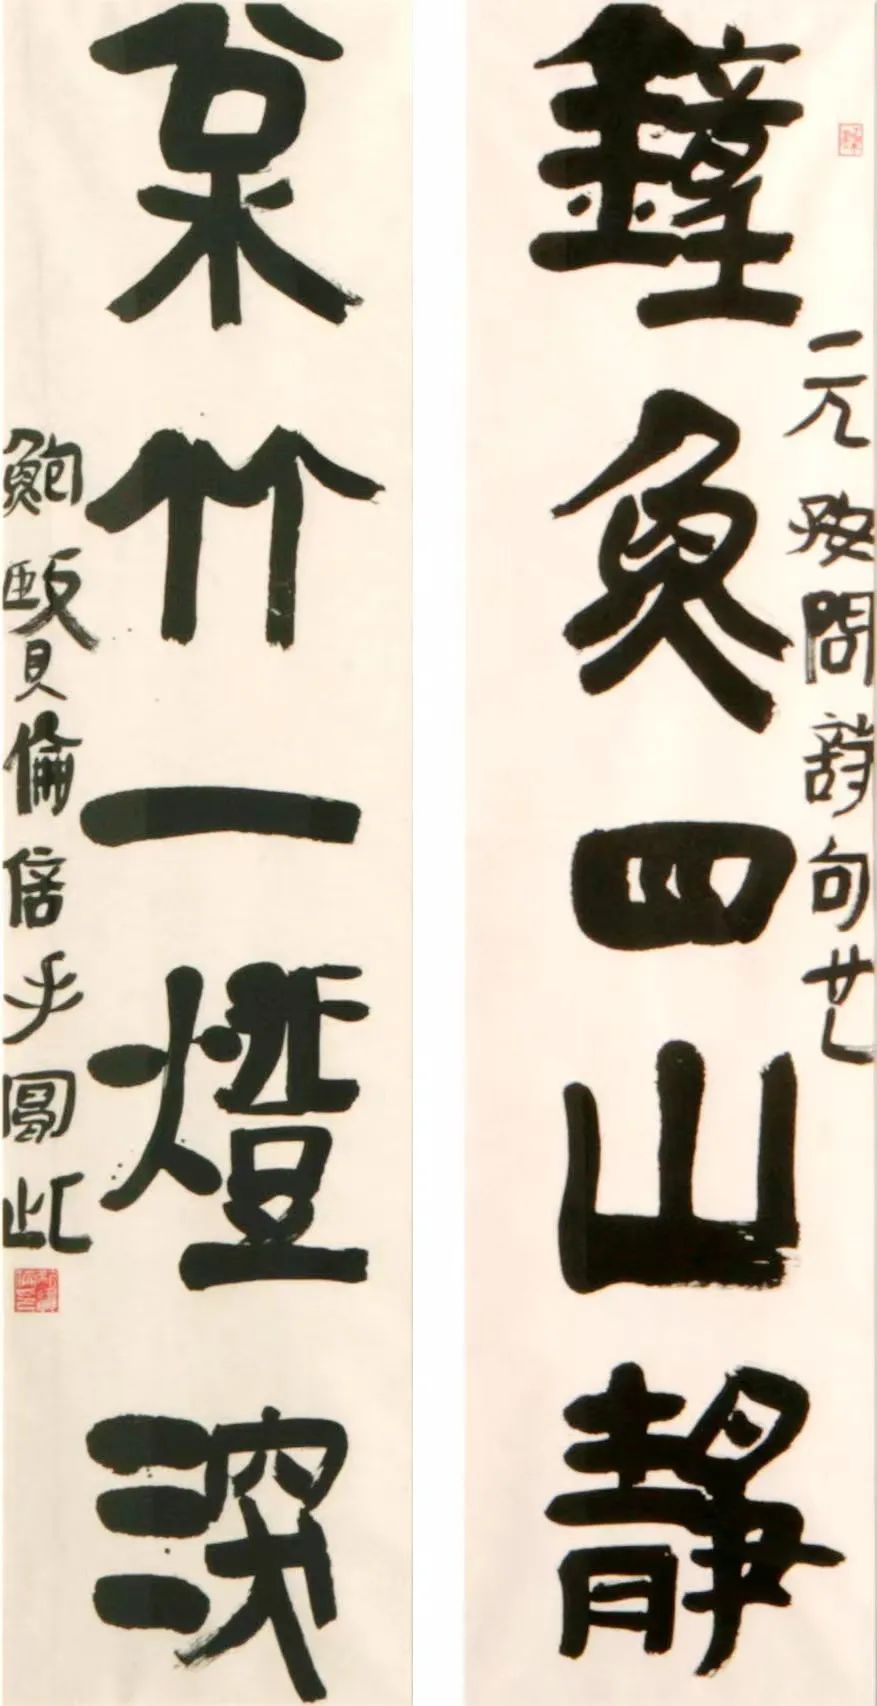 鐘魚四山靜
元好問詩句也
枀竹一燈深
鮑賢倫信手圖此